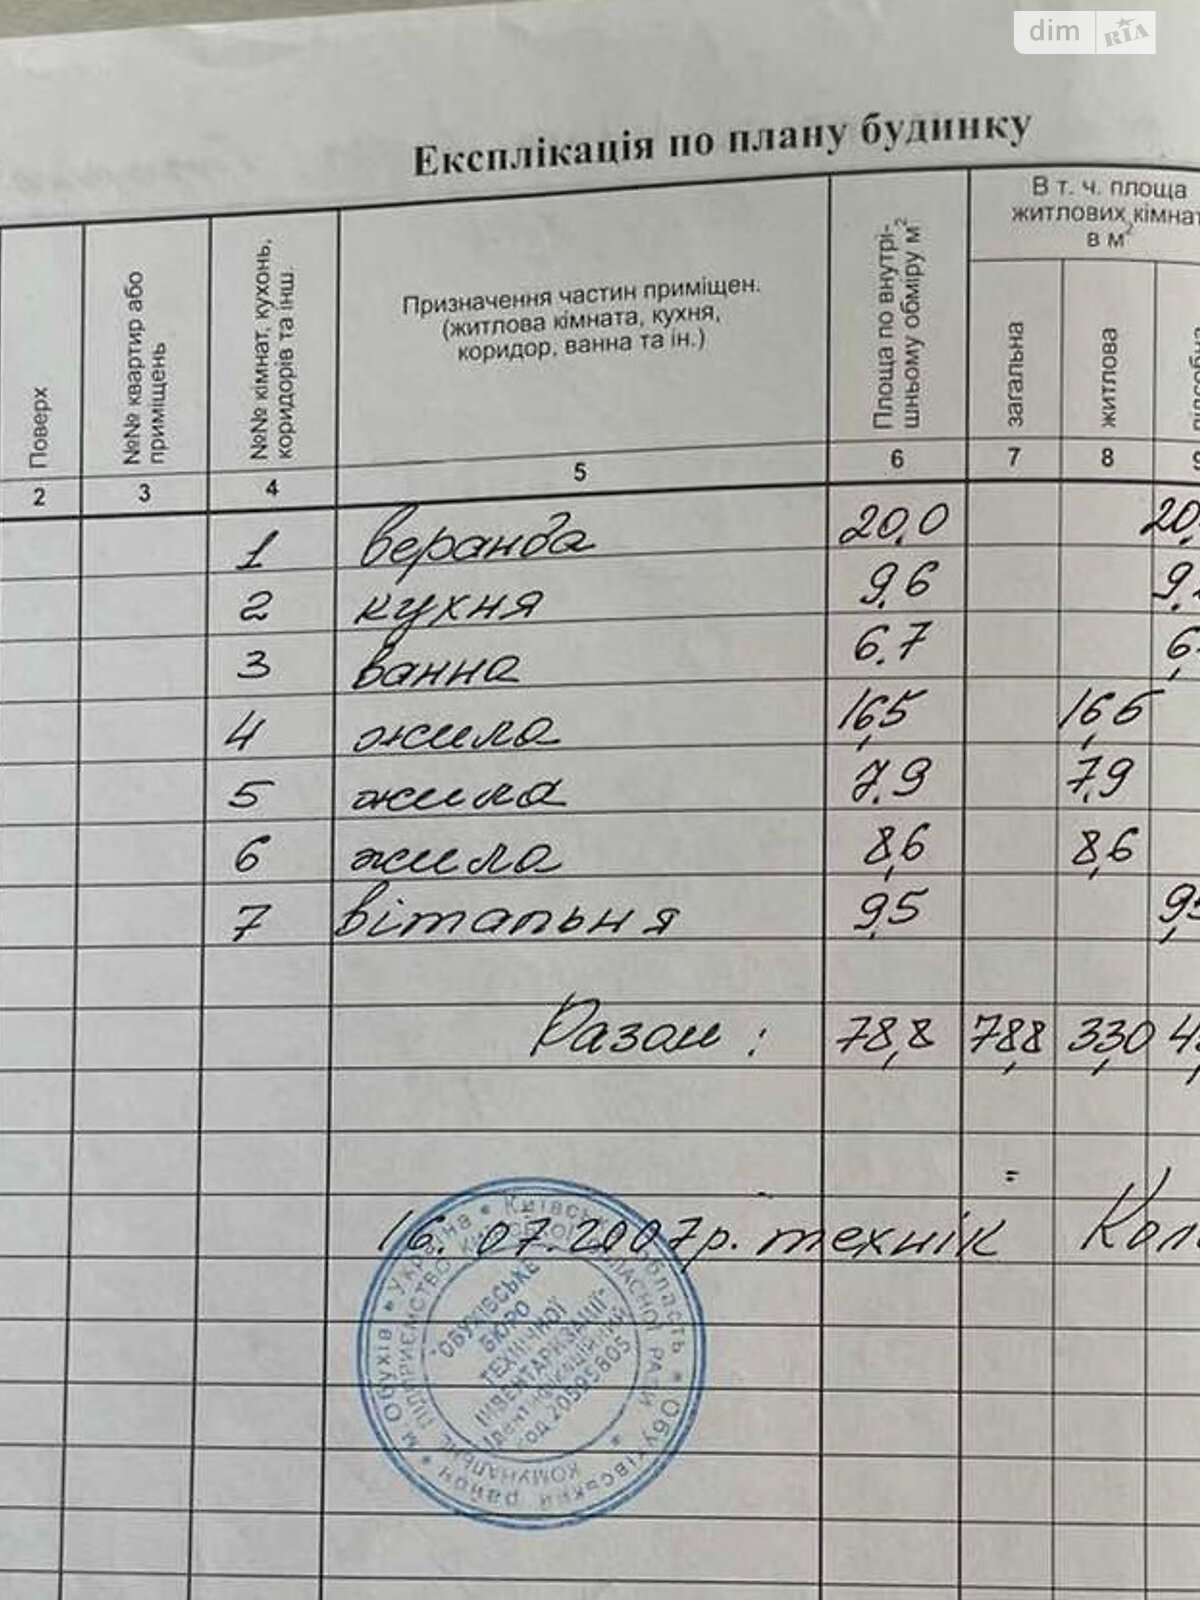 dim RIA
Експлікація по плану будинку
Поверх
№№ квартир або приміщень
№№ кімнат, кухонь, коридорів та інш.
Призначення частин приміщен.
(житлова кімната, кухня,
коридор, ванна та ін.)
Площа по внутрі-
шньому обміру м²
В т. ч. площа
житлових кімнат
в м²
загальна
житлова
2 3 4 5 6 7 8
1 веранда 20,0 20,
2 кухня 9,6 9,
3 ванна 6,7 6,
4 жила 16,5 16,6
5 жила 7,9 7,9
6 жила 8,6 8,6
7 вітальня 9,5 9,5
Разом: 78,8 78,8 33,0 4
16.07.2007р. технік
Україна * Київська область * Обухівський район * м Обухів
КОМУНАЛЬНЕ ПІДПРИЄМСТВО КИЇВСЬКОЇ ОБЛАСНОЇ РАДИ
"ОБУХІВСЬКЕ
БЮРО
ТЕХНІЧНОЇ
ІНВЕНТАРИЗАЦІЇ"
Ідентифікаційний
код 20595805